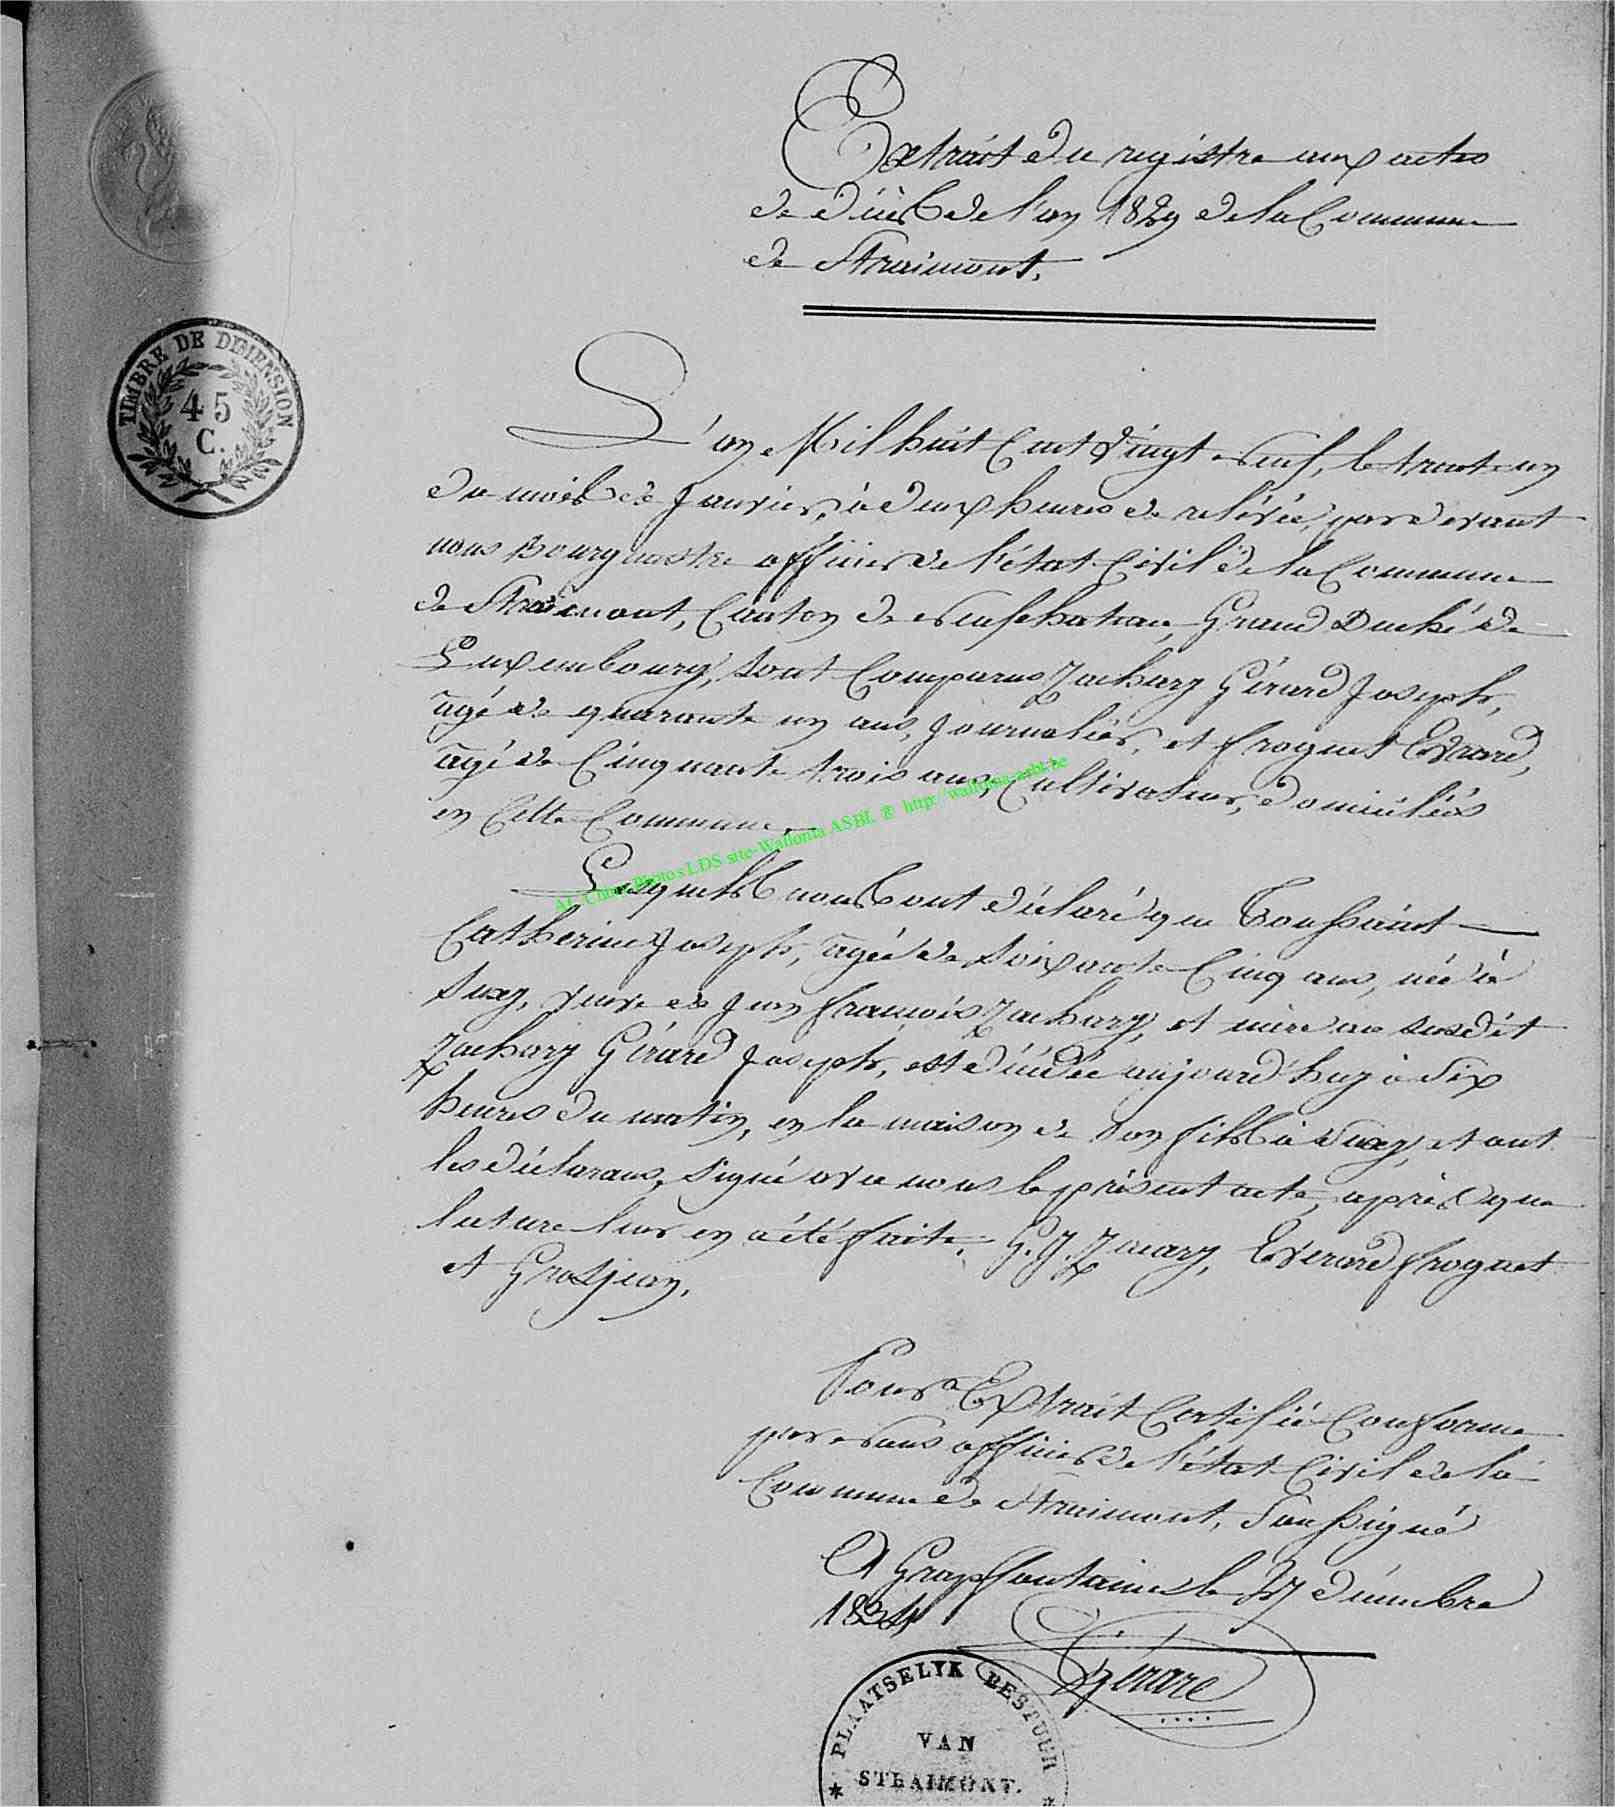 Extrait du registre aux actes
de décès de l'an 1829 de la Commune
de Straimont.
TIMBRE DE DIMENSION
45
C.
L'an Mil huit Cent Vingt neuf, le trente un
du mois de Janvier, à deux heures de relévée, pardevant
nous Bourgmestre officier de l'état Civil de la Commune
de Straimont, Canton de neufchateau, Grand Duché de
Luxembourg, sont Comparus Zachary Gérard Joseph,
agé de quarante un ans, Journalier, et frognet Evrard,
agé de Cinquante trois ans, Cultivateur, domiciliés
en Cette Commune.
Photos LDS site-Wallonia ASBL ® http://wallonia-asbl.be
Lesquels nous ont déclaré que Toussaint
Catherine Joseph, agée de soixante Cinq ans, née à
Suxy, veuve de Jean françois Zachary, et mère au susdit
Zachary Gérard Joseph, est décédée aujourd'huy à six
heures du matin, en la maison de son fils à Suxy, et ont
les déclarans, signé avec nous le présent acte, après que
lecture leur en a été faite. G. J. Zacary, Everard frognet
et Grosjean.
Pour Extrait Certifié Conforme
par nous officier de l'état Civil de la
Commune de Straimont, Soussigné
A Grapfontaine le 27 décembre
1834
Gérard
PLAATSELYK BESTUUR
VAN
STRAIMONT.